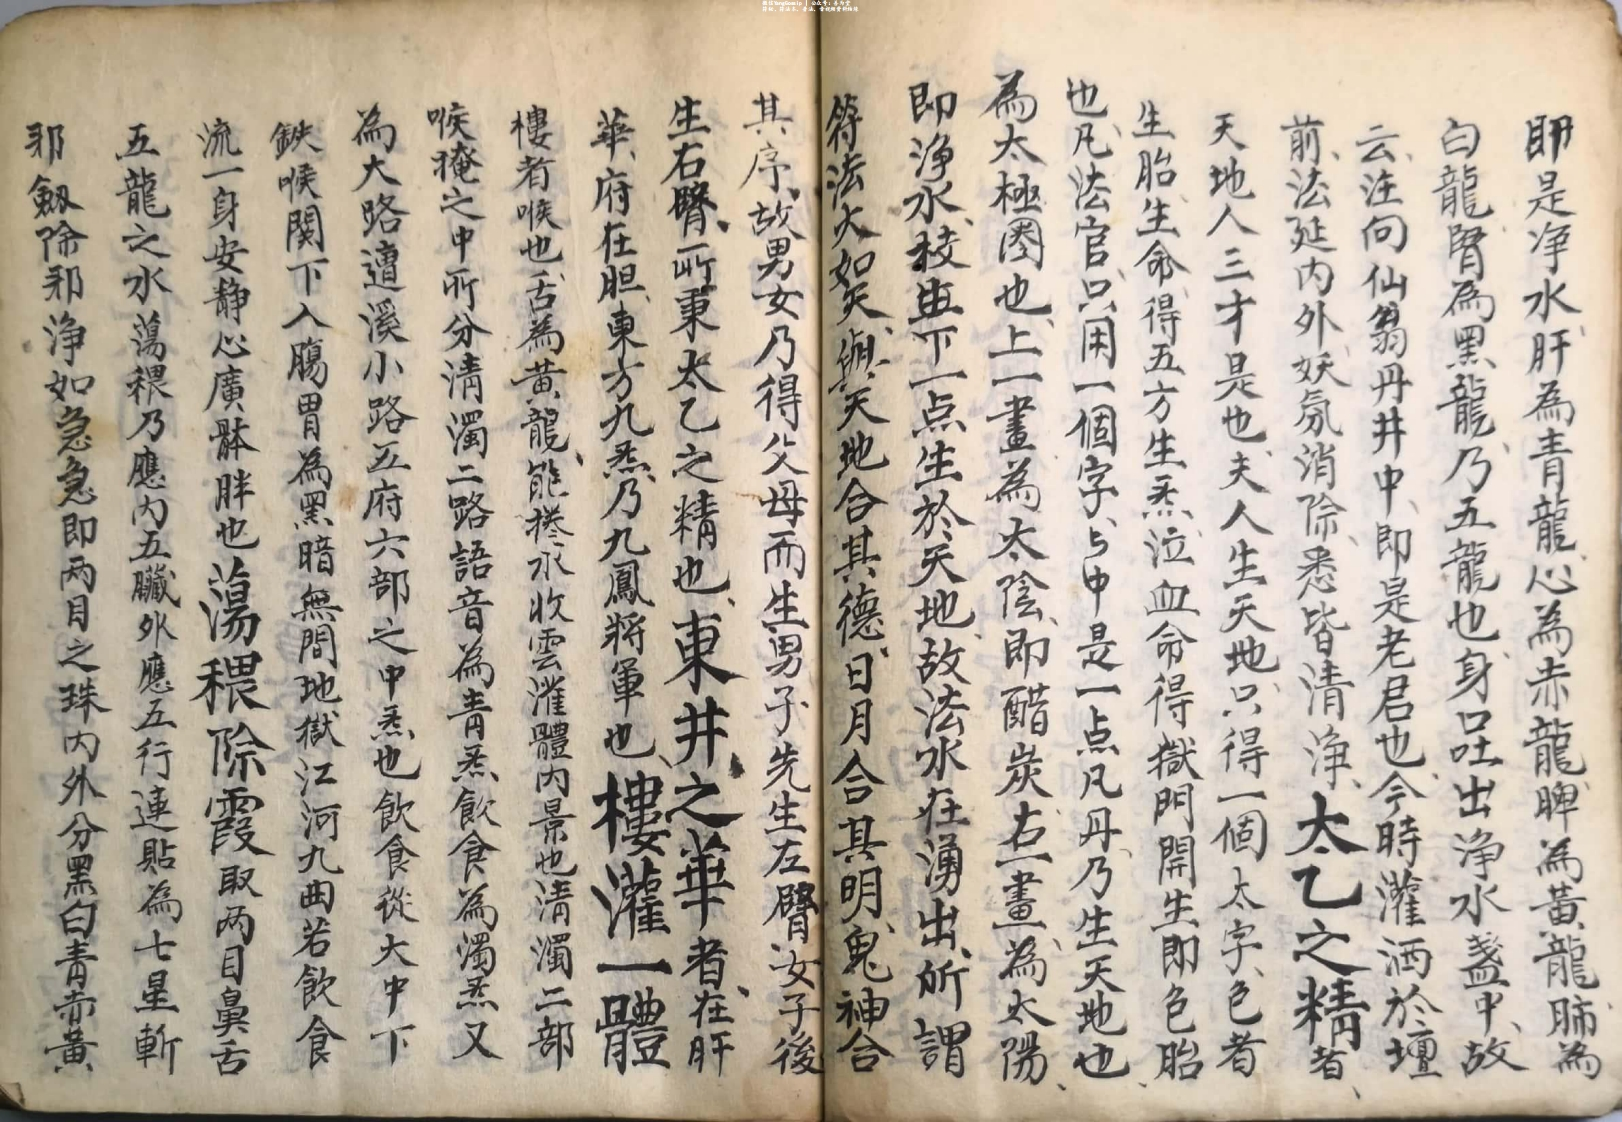 即是净水肝為青龍心為赤龍脾為黃龍肺為
白龍腎為黑龍乃五龍也身口吐出净水盞中故
云注向仙翁丹井中即是老君也今時灌洒於壇
前法延内外妖氛消除悉皆清净太乙之精者
天地人三才是也夫人生天地只得一個太字色者
生胎生命得五方生炁泣血命得獄門開生即色胎
也凡法官只用一個字与中是一点凡丹乃生天地也
為太極圈也上一畫為太陰即醋炭右一畫為太陽
即净水秡生下一点生於天地故法水在湧出所謂
符法大如天與天地合其德日月合其明鬼神合
其序故男女乃得父母而生男子先生左臂女子後
生右臂所秉太乙之精也東井之華者在肝
華府在胆東方九炁乃九鳳將軍也樓灌一體
樓者喉也舌為黃龍能捲水收雲灌體内景也清濁二部
喉掩之中所分清濁二路語音為青炁飲食為濁炁又
為大路遭溪小路五府六部之中炁也飲食從大中下
鉄喉関下入腸胃為黑暗無間地獄江河九曲若飲食
流一身安静心廣體胖也蕩穢除霞取两目鼻舌
五龍之水蕩穢乃應内五臟外應五行連貼為七星斬
邪劔除邪净如急急即两目之珠内外分黑白青赤黃